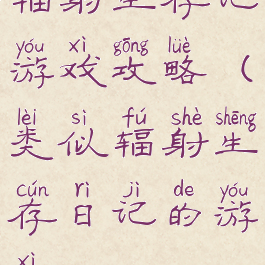 辐射生存记
yóu xì gōng lüè
游戏攻略（
lèi sì fú shè shēng
类似辐射生
cún rì jì de yóu
存日记的游
xì